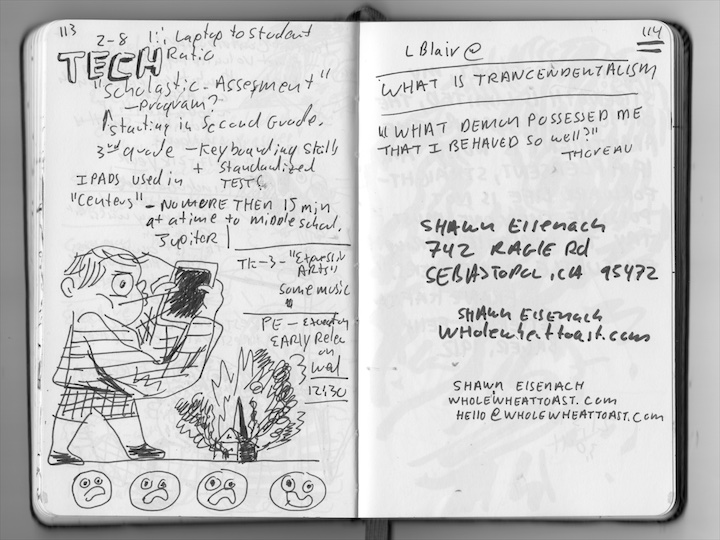 113
2-8 1:1 Laptop to Student
Ratio
TECH
"Scholastic Assesment"
-Program?
Starting in Second Grade.
3rd grade - Keyboarding Skills
+ Standardized
TESTS
IPADS used in
"Centers" - NO MORE THEN 15 min
at a time to middle school.
Jupiter
TK-3-"Expressive
ARTS"
some music
PE -
EARLY Release
on
Wed
12:30
114
L Blair @
WHAT IS TRANCENDENTALISM
"WHAT DEMON POSSESSED ME
THAT I BEHAVED SO WELL?"
THOREAU
SHAWN EISENACH
742 RAGLE RD
SEBASTOPOL, CA 95472
SHAWN EISENACH
WHOLEWHEATTOAST.COM
SHAWN EISENACH
WHOLEWHEATTOAST.COM
HELLO@WHOLEWHEATTOAST.COM